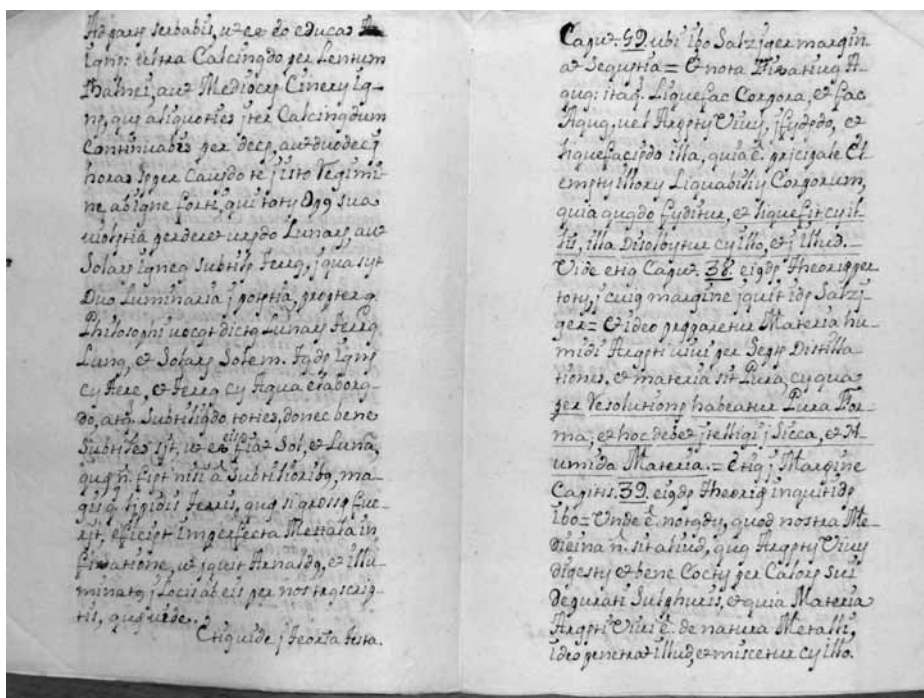 Ad partẽ serbabis, ut ex eo educas
Ignẽ: ultra Calcinãdo per Lentum
Balnei, aut Mediocrẽ Cinerũ Ig-
nẽ, quẽ aliquoties iter Calcinãdum
Continuabis per decẽ, aut duodecĩ
horas sẽper Cauẽdo te isto Regimi-
ne ab igne forti, qui totũ Opꝰ sua
uiolẽtia perderet urẽdo Lunarẽ, aut
Solarẽ igneã subtilẽ Terrã, i qua sũt
Duo Luminaria i potẽtia, propter ꝗ
Philosophi uocãt dictã Lunarẽ Terrã
Lunã, et Solarẽ Solem. Igẽ
cũ Aere, et Terrã cũ Aqua elaborã-
do, atꝗ Subtiliãdo toties, donec bene
Subtiles sĩt, ut ex eis fiat Sol, et Luna,
quẽ ñ. fiẽt nisi à Subtilioribꝰ, ma-
gisꝗ lipidis Terris, quẽ si grossẽ fue-
rĩt, eficiẽt imperfecta Metalla in
fixatione, ut iquit Arnaldꝰ, et illu-
minatꝰ i Locis ab eis per nos trãscrip-
tis, quẽ uide.
Etiã uide i Teoria Testa.
Capit. 59. ubi ibo Salziger margin
at Sequẽtia = Et nota Fixatiuã A-
quã: itaꝗ Liquefac Corpora, et fac
Aquã, uel Argẽtũ Viuũ, ifũdẽdo, et
liquefaciẽdo illa, quia ẽ. pricipale El
emẽtũ illorũ Liquabiliũ Corporum,
quia quãdo fũditur, et liquefit cũ il-
lis, illa Disolbũtur cũ illo, et i illud.
Vide etiã Capit. 38. eiꝰdẽ Theoriẽ per
totũ, i cuiꝰ margine iquit idẽ Salzi-
ger = Et ideo prẽparetur Materia hu-
midi Argẽti uiui per Septẽ Distilla-
tiones, et materia sit Pura, cũ qua
per Resolutionẽ habeatur Pura For-
ma; et hoc debet itelligi i Sicca, et H-
umida Materia. = Etiã i Margine
Capitis. 39. eiꝰdẽ Theoriẽ inquit idẽ
ibo = Unde ẽ. notãdũ, quod nostra Me-
dicina ñ. sit aliud, quã Argẽtũ Viuũ
digestũ et bene Coctũ per Calorẽ sui
Depurati Sulphuris, et quia Materia
Argẽti Viui ẽ. de natura Metalli,
ideo penetrat illud, et miscetur cũ illo.